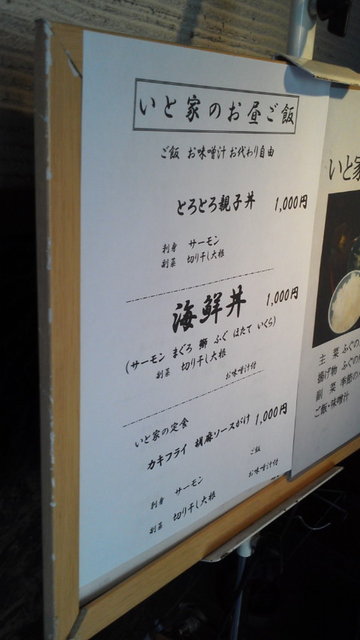 いと家のお昼ご飯
ご飯 お味噌汁 お代わり自由
とろとろ親子丼 1,000円
刺身 サーモン
副菜 切り干し大根
海鮮丼 1,000円
(サーモン まぐろ 鰤 ふぐ ほたて いくら)
副菜 切り干し大根
お味噌汁付
いと家の定食
カキフライ 胡麻ソースがけ 1,000円
ご飯
刺身 サーモン
お味噌汁付
副菜 切り干し大根
いと家
主菜 ふぐの
揚げ物 ふぐの
副菜 季節の
ご飯・味噌汁